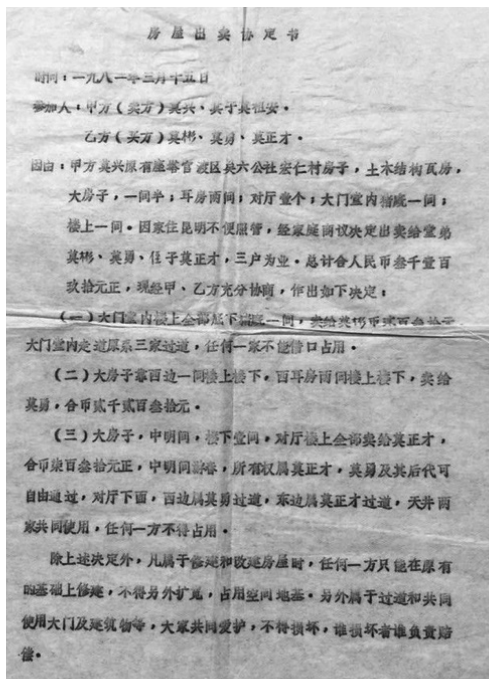 房屋出卖协定书
时间:一九八一年三月十五日
参加人:甲方(卖方)莫兴、其子莫祖安。
乙方(买方)莫彬、莫勇、莫正才。
因由:甲方莫兴原有座落官渡区吴六公社宏仁村房子,土木结构瓦房,
大房子,一间半;耳房两间;对厅壹个;大门室内楼底一间;
楼上一间。因家住昆明不便照管,经家庭商议决定出卖给堂弟
莫彬、莫勇、住子莫正才,三户为业。总计合人民币叁千壹百
玖拾元正,现经甲、乙方充分协商,作出如下决定:
(一)大门室内楼上全部底下楼底一间,卖给莫彬币贰百叁拾元
大门室内走道原系三家过道,任何一家不能借口占用。
(二)大房子靠西边一间楼上楼下,西耳房两间楼上楼下,卖给
莫勇,合币贰千贰百叁拾元。
(三)大房子,中明间,楼下壹间,对厅楼上全部卖给莫正才,
合币柒百叁拾元正,中明间游春,所有权属莫正才,莫勇及其后代可
自由通过,对厅下面,西边属莫勇过道,东边属莫正才过道,天井两
家共同使用,任何一方不得占用。
除上述决定外,凡属于修建和改建房屋时,任何一方只能在原有
的基础上修建,不得另外扩宽,占用空间地基。另外属于过道和共同
使用大门及建筑物等,大家共同爱护,不得损坏,谁损坏者谁负责赔
偿。